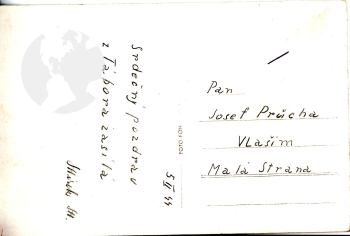 Srdečný pozdrav
z Tábora zasílá
5 VI 44
FOTO-FON
Pan
Josef Průcha
Vlašim
Malá Strana